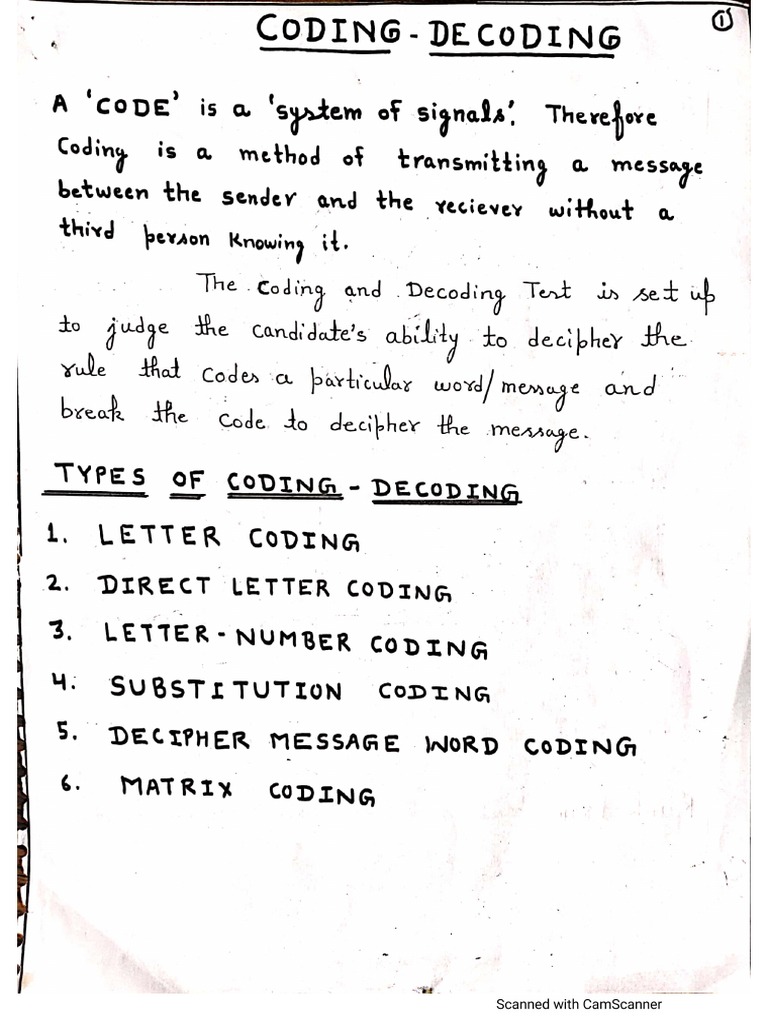 1
CODING - DECODING
A 'CODE' is a 'system of signals'. Therefore
Coding is a method of transmitting a message
between the sender and the reciever without a
third person Knowing it.
The Coding and Decoding Test is set up
to judge the candidate's ability to decipher the
rule that codes a particular word/message and
break the code to decipher the message.
TYPES OF CODING - DECODING
1. LETTER CODING
2. DIRECT LETTER CODING
3. LETTER - NUMBER CODING
4. SUBSTITUTION CODING
5. DECIPHER MESSAGE WORD CODING
6. MATRIX CODING
Scanned with CamScanner